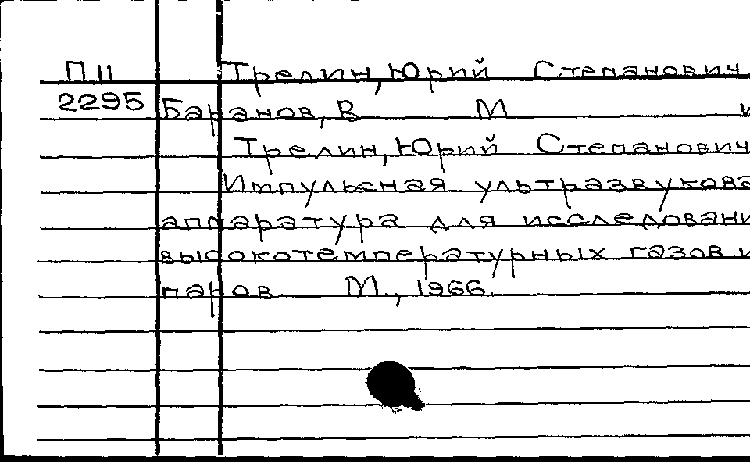 П 11 Трелин, Юрий Степанович
2295 Баранов, В М и
Трелин, Юрий Степанович
Импульсная ультразвукова
аппаратура для исследовани
высокотемпературных газов и
паров М., 1966.